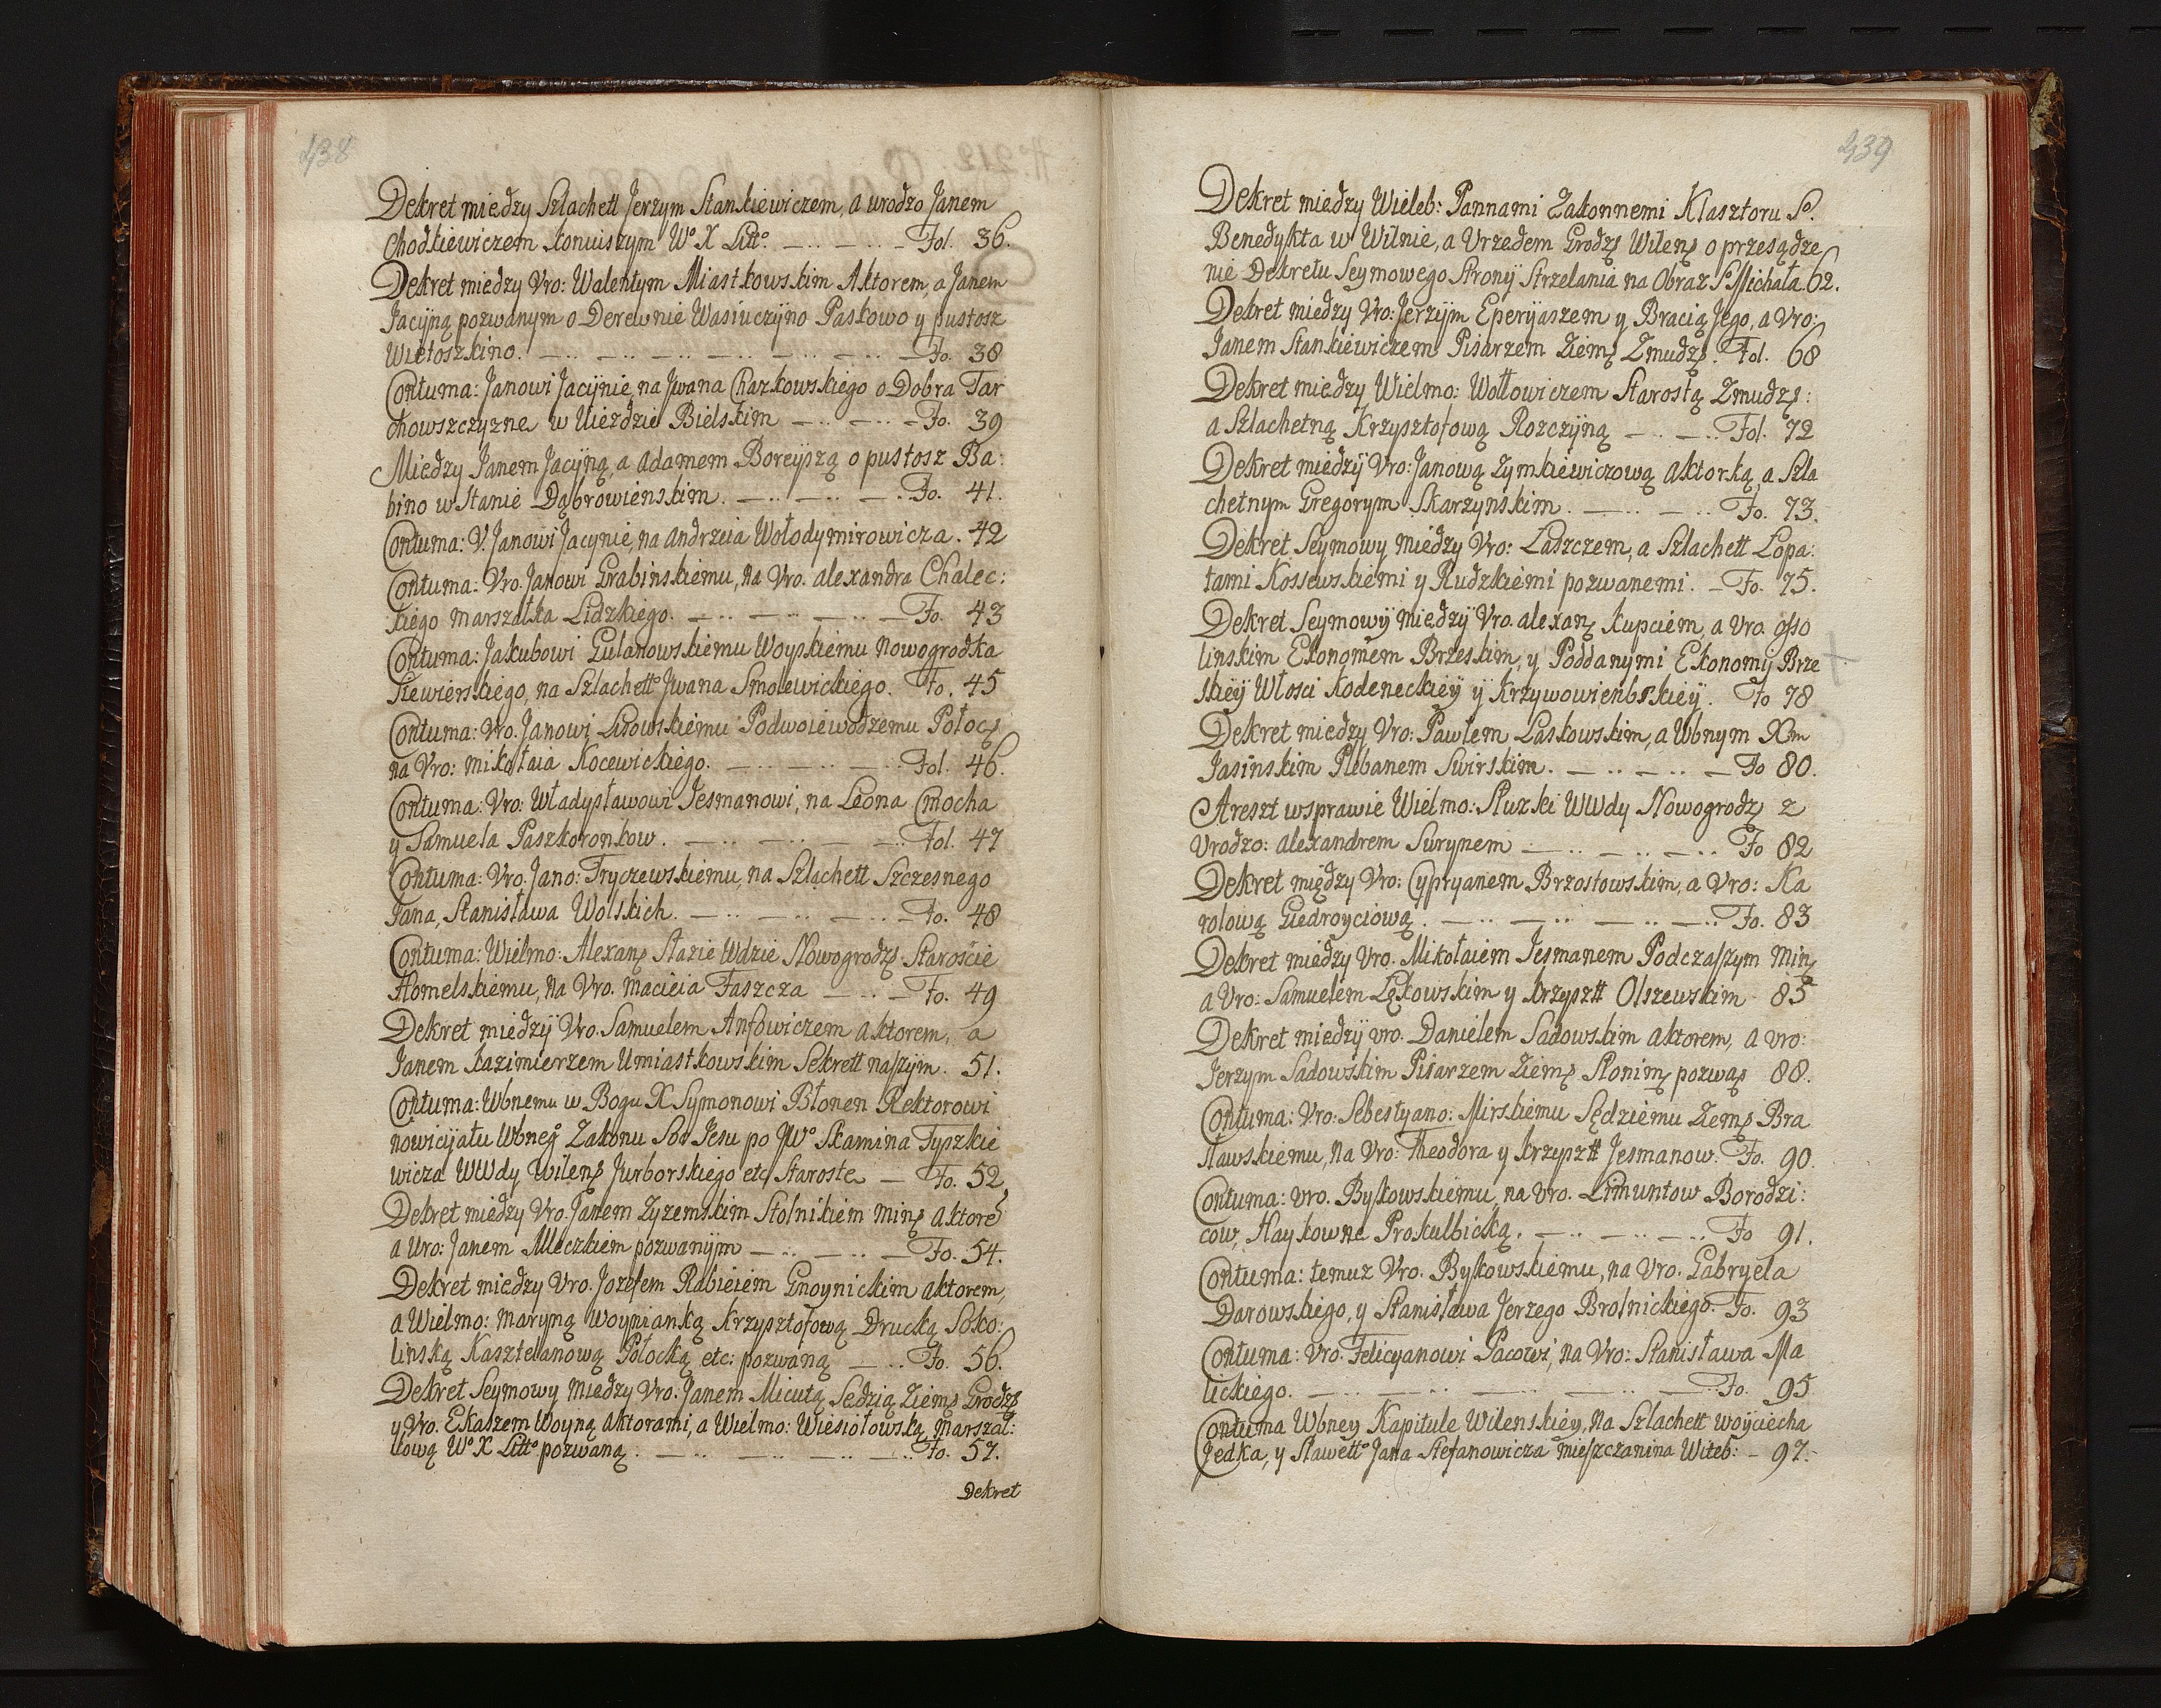 438
Dekret miedzy Szlachett Jerzym Stankiewiczem, a urodzo Janem
Chodkiewiczem koniuszym Wº X Littº. — Fol. 36.
Dekret miedzy Vro: Walentym Miastkowskim Aktorem, a Janem
Jacyną pozwanym o Derewnie Wasiuczyno Paskowo y pustosz
Wietoszkino. — Fo. 38
Contuma: Janowi Jacynie, na Jwana Charkowskiego o Dobra Tar
chowszczyzne w Uiezdzie Bielskim — Fo. 39
Miedzy Janem Jacyną, a Adamem Boreyszą o pustosz Ba:
bino w Stanie Dąbrowienskim. — Fo. 41.
Contuma: V. Janowi Jacynie, na Andrzeia Wołodymirowicza. 42
Contuma: Vro. Janowi Grabinskiemu, na Vro. alexandra Chalec:
kiego marszałka Lidzkiego. — Fo. 43
Contuma: Jakubowi Gulanowskiemu Woyskiemu Nowogrodka
Siewierskiego, na Szlachettº Jwana Smolewickiego. Fo. 45
Contuma: Vro. Janowi Lisowskiemu Podwoiewodzemu Połocs
na Vro: mikołaia Kocewickiego. — Fol. 46.
Contuma: Vro: Władysławowi Jesmanowi, na Leona Cmocha
y Samuela Paszkoronkow. — Fol. 47
Contuma: Vro. Jano: Tryczewskiemu, na Szlachett Szczesnego
Jana, Stanisława Wolskich. — Fo. 48
Contuma: Wielmo: Alexans Słuzie Wdzie Nowogrodzs Staroście
Homelskiemu, na Vro. macieia Faszcza — Fo. 49
Dekret miedzy Vro. Samuelem Anfowiczem aktorem, a
Janem Kazimierzem Umiastkowskim Sekrett naszym. 51.
Contuma: Wbnemu w Bogu X Symonowi Błonen Rektorowi
nowicyatu Wbneg Zakonu Soc Jesu po JWº Skamina Tyszkie
wicza WWdy Wilens Jurborskiego etc Staroste — Fo. 52
Dekret miedzy Vro. Janem Zyzemskim Stolnikiem mins aktore
a Uro: Janem Mleczkiem pozwanym — Fo. 54.
Dekret miedzy Vro. Jozefem Rabieiem Gnoynickim aktorem,
a Wielmo: maryną Woynianką Krzysztofową Drucką Soko:
linską Kasztelanową Połocką etc: pozwaną — Fo. 56.
Dekret Seymowy miedzy Vro. Janem Micutą Sedzią Ziems Grodzs
y Vro. Ekaszem Woyną aktorami, a Wielmo: Wiesiołowską marszał:
kową Wº X Littº pozwaną. — Fo. 57.
Dekret
439
Dekret miedzy Wieleb: Pannami Zakonnemi Klasztoru S.
Benedykta w Wilnie, a Vrzedem Grodzs Wilens o przesądze
nie Dekretu Seymowego Strony Strzelania na Obraz S Michała. 62.
Dekret miedzy Vro: Jerzym Eperyaszem y Bracią Jego, a Vro:
Janem Stankiewiczem Pisarzem Ziems Zmudzs. Fol. 68
Dekret miedzy Wielmo: Wołłowiczem Starostą Zmudzs:
a Szlachetną Krzysztofową Rozczyną — Fol. 72
Dekret miedzy Vro: Janową Zymkiewiczową aktorką, a Szla
chetnym Gregorym Skarzynskim. — Fo. 73.
Dekret Seymowy miedzy Vro: Laszczem, a Szlachett Lopa:
tami Kossewskiemi y Rudzkiemi pozwanemi. — Fo. 75.
Dekret Seymowy miedzy Vro. alexans kupciem, a Vro. Osso
linskim Ekonomem Brzeskim, y Poddanymi Ekonomy Brze
skiey Włosci Kodeneckiey y Krzywowierbskiey. Fo 78
Dekret miedzy Vro: Pawłem Laskowskim, a Wbnym Xm
Jasinskim Plebanem Swirskim. — Fo 80.
Areszt wsprawie Wielmo: Słuzki WWdy Nowogrodzs z
Vrodzo: alexandrem Surynem — Fo 82
Dekret między Vro: Cypryanem Brzostowskim, a Vro: Ka
rolową Giedroyciową. — Fo. 83
Dekret miedzy Vro. Mikołaiem Jesmanem Podczaszym Mins
a Vro: Samuelem Lękowskim y krzysztt Olszewskim 85
Dekret miedzy vro. Danielem Sadowskim aktorem, a vro:
Jerzym Sadowskim Pisarzem Ziems Słonims pozwas 88.
Contuma: Vro: Sebestyano: Mirskiemu Sędziemu Zems Bra
sławskiemu, na Vro: Theodora y krzysztt Jesmanow. Fo. 90.
Contuma: vro. Bykowskiemu, na vro. Limuntow Borodzi:
cow, Haykowne Prokulbicką. — Fo 91.
Contuma: temuz Vro. Bykowskiemu, na Vro. Gabryela
Darowskiego, y Stanisława Jerzego Brolnickiego. Fo. 93
Contuma: Vro. Felicyanowi Pacowi, na Vro: Stanisława Ma
lickiego. — Fo. 95
Contuma Wbney Kapitule Wilenskiey, na Szlachett woyciecha
Jedka, y Sławettº Jana Stefanowicza mieszczanina Witeb: — 97.